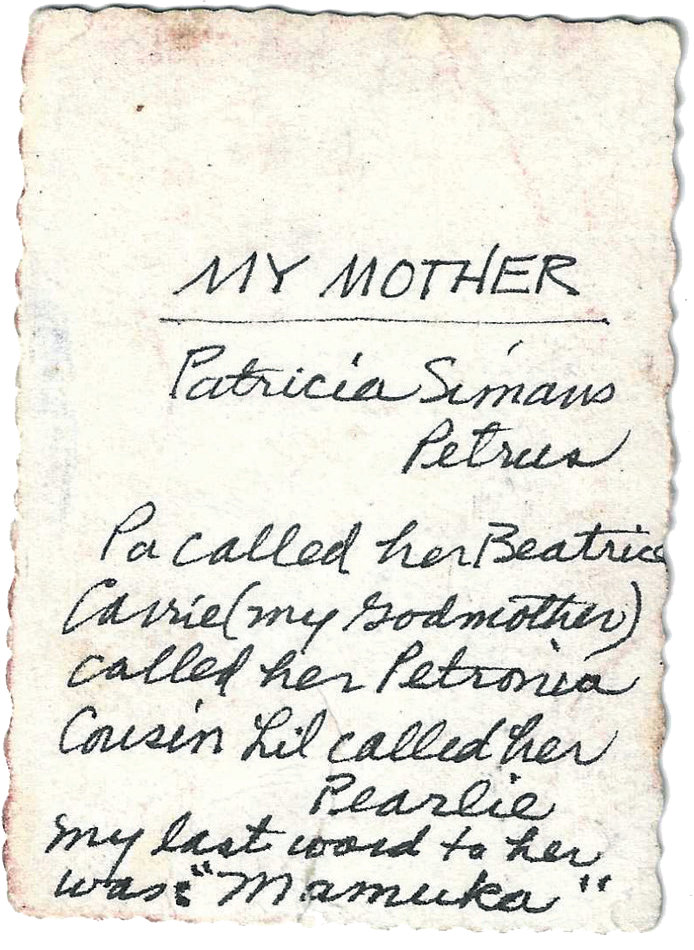 MY MOTHER
Patricia Simans
Petrus
Pa called her Beatrice
Carrie (my Godmother)
called her Petronia
Cousin Lil called her
Pearlie
my last word to her
was: "Mamuka"